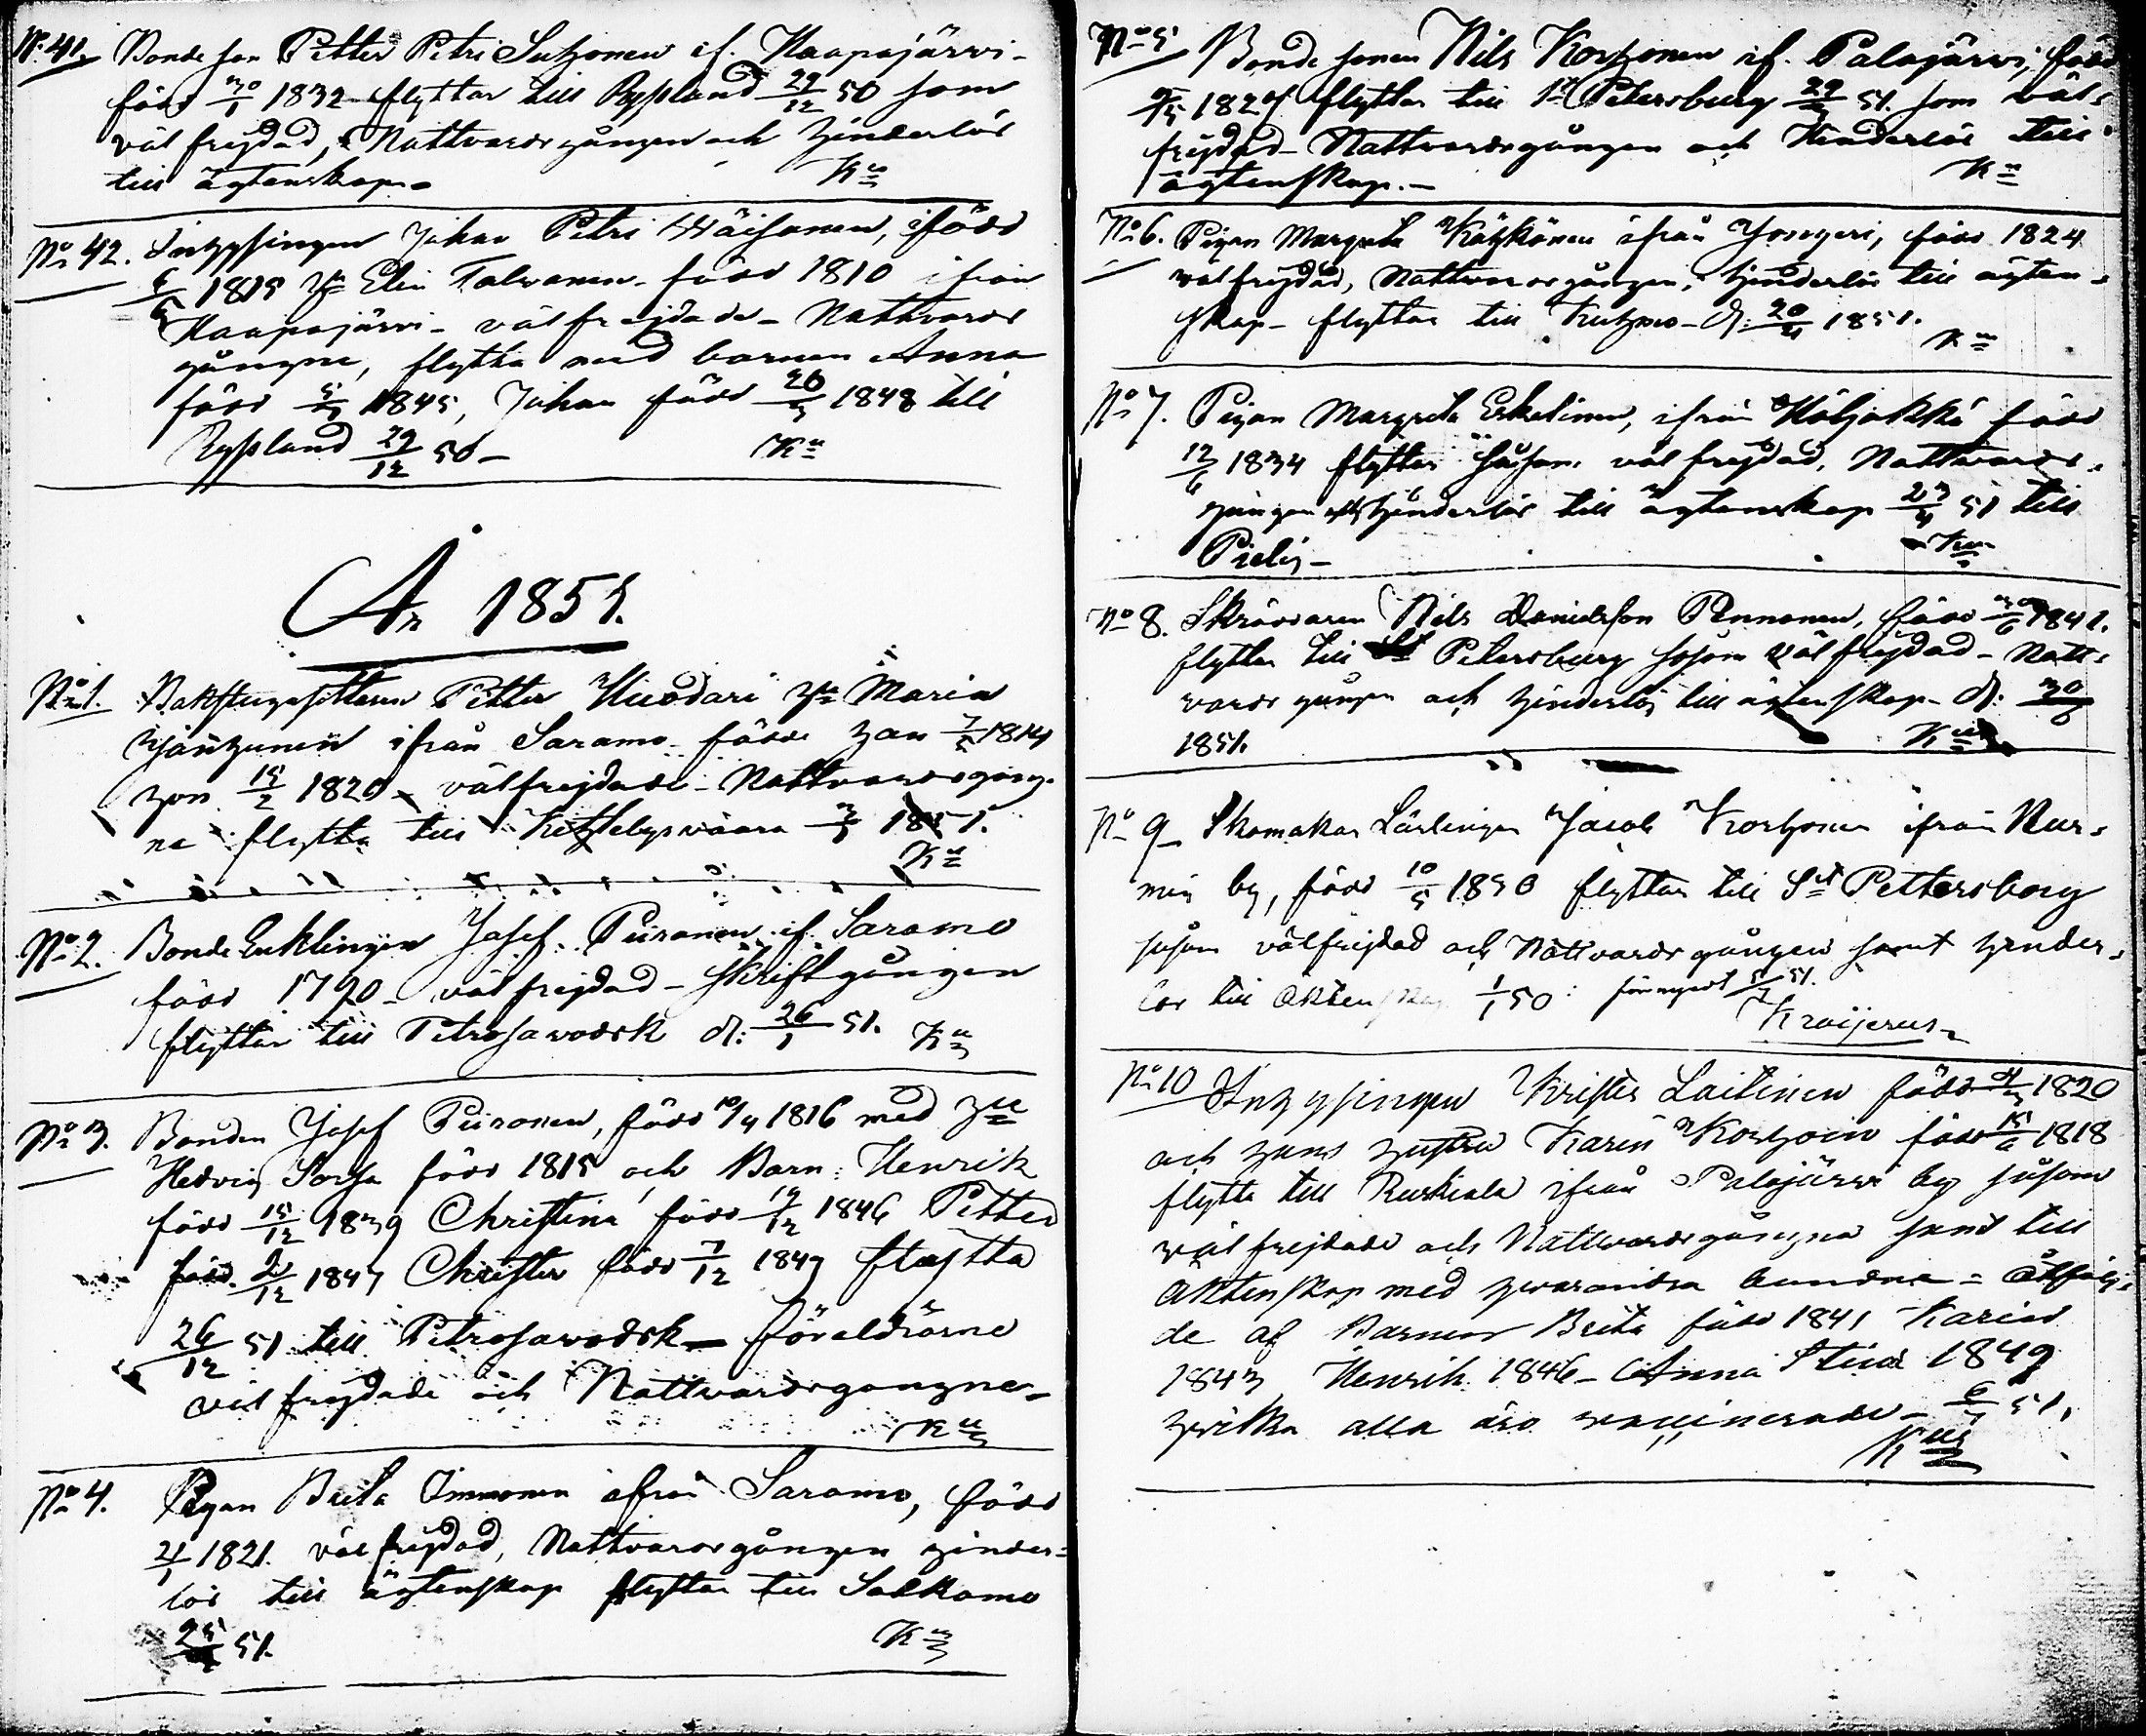 No 41. Bonde son Petter Petri Sutzonen if. Haapajärvi -
född 30/1 1832 flyttar till Ryssland 29/12 50 som
väl frejdad, Nattvardsgången och hinderlös
till ägtenskap. Kus
No 42. Inhysingen Johan Petri Wäisänen, född
6/6 1815 hu Elin Talwanen född 1810 ifrån
Haapajärvi - välfrejdade - Nattvards
gångne, flytta med barnen Anna
född 1845, Johan född 26/3 1848 till
Ryssland 29/12 50 - Kus
År 1851.
No 1. Backstugusittaren Petter Huodari hu Maria
ifrån Saramo - födde han 7/5 1814
hon 15/2 1820 - välfrejdade - Nattvardsgång-
ne flytta till Kihtelysvaara 3/3 1851.
Kus
No 2. Bonde Enklingen Josef Piironen if. Saramo
född 1790 - väl frejdad - skriftgången
flyttar till Petrosawodsk d: 26/1 51. Kus
No 3. Bonden Josef Piironen, född 10/4 1816 med hu
Hedvig Sorsa född 1815 och Barn: Henrik
född 15/12 1839 Christina född 19/12 1846 Petter
född 2/12 1847 Christer född 7/12 1849 flytta
26/12 51 till Petrosawodsk - föräldrarne
väl frejdade och Nattvardsgangne -
Kus
No 4. Pigan Brita Immonen ifrån Saramo, född
21/1 1821. väl frejdad, Nattvardsgången hinder-
lös till ägtenskap flyttar till Sotkamo
25 51. Kus
No 5 Bonde sonen Nils Korhonen if. Palojärvi, född
9/5 1824 flyttar till St Petersburg 29/3 51. som väl-
frejdad - Nattvardsgången och Hinderlös till
ägtenskap. - Kus
No 6. Pigan Margreta Kähkönen ifrån Jongeri, född 1824
välfrejdad, Nattvardsgången, hinderlös till ägten-
skap - flyttar till Kuhmo - d: 20/4 1851.
Kus
No 7. Pigan Margreta Eskelinen, ifrån Höljäkkä född
12/6 1834 flyttar såsom väl frejdad, Nattvards-
gången och hinderlös till ägtenskap 23/4 51 till
Pielis - Kus
No 8. Skräddaren Nils Danielsson Pennonen, född 30/6 1841.
flyttar till St Petersburg såsom välfrejdad - Natt-
vards gången och hinderlös till ägtenskap - d: 30/6
1851. Kus
No 9 Skomakar Lärlingen Jacob Korhonen ifrån Nur-
mis by, född 10/5 1830 flyttar till St Pettersborg
såsom välfrejdad och Nattvards gången samt hinder-
lös till äktenskap 1/1 50: förnyadt 5/7 51.
Kraijerus
No 10 Inhysingen Krister Laitinen född 1820
och hans hustru Karin Korhoin född 15/6 1818
flytta till Ruskiala ifrån Palojärvi by såsom
väl frejdade och Nattvardsgångna samt till
äktenskap med hvarandra bundna - åtfölj-
de af Barnen Brita född 1841 Karin
1843 Henrik 1846 - Anna Stina 1849
hvilka alla äro vaccinerade - 6/7 51.
Kus